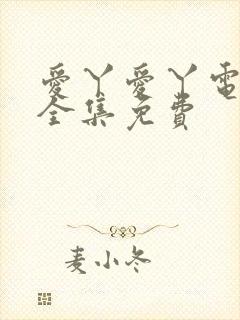 愛丫愛丫電
全集免費
麦小冬